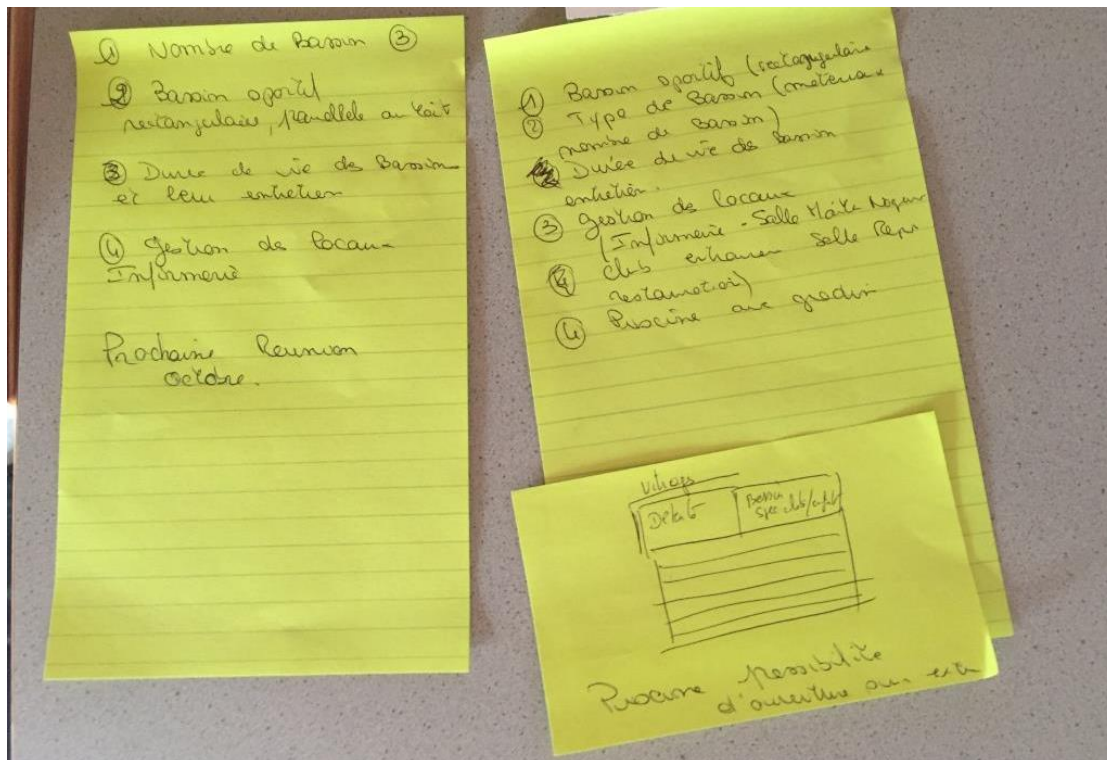 ① Nombre de Bassin ③
② Bassin sportif
rectangulaire, parallele au toit
③ Duree de vie des Bassins
et leur entretien
④ gestion des locaux
Infirmerie
Prochaine Reunion
octobre.
① Bassin sportif (rectangulaire
② Type de Bassin (materiaux
nombre de Bassin)
Durée de vie des Bassin
entretien.
③ gestion des locaux
(Infirmerie - Salle Maitre Nageur
club Salle
restauration)
④ Piscine avec gradin
vitrage
Détente
Bassin
Piscine possibilite
d'ouverture sur